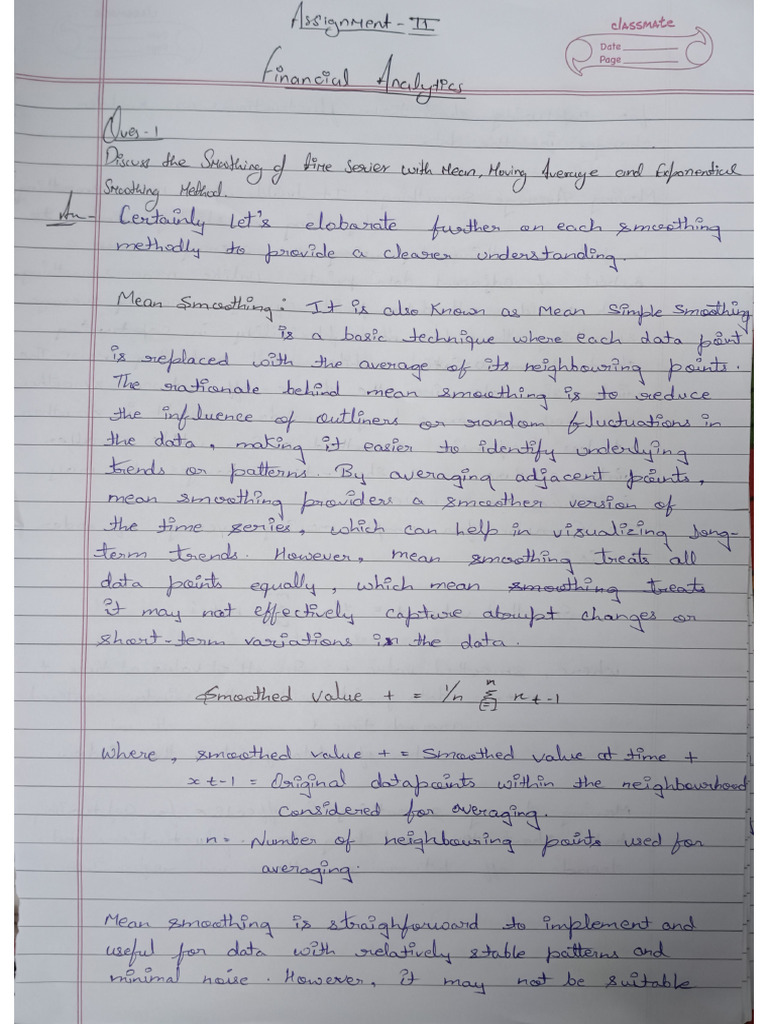 Assignment - II
classmate
Date
Page
Financial Analytics
Ques-1
Discuss the Smoothing of time series with Mean, Moving Average and Exponential
Smoothing Method.
An- Certainly Let's elabarate further on each smoothing
methodly to provide a clearer understanding.
Mean Smoothing: It is also known as Mean Simple smoothing
is a basic technique where each data point
is replaced with the average of its neighbouring points.
The rationale behind mean smoothing is to reduce
the influence of outliners or random fluctuations in
the data, making it easier to identify underlying
trends or patterns. By averaging adjacent points,
mean smoothing providers a smoother version of
the time series, which can help in visualizing long-
term trends. However, mean smoothing treats all
data points equally, which mean smoothing treats
it may not effectively capture abrupt changes or
short-term variations in the data.
Smoothed value t = 1/n n Σ i=1 x t-1
where, smoothed value t = Smoothed value at time t
x t-1 = Original datapoints within the neighbourhood
considered for averaging.
n = Number of neighbouring points used for
averaging.
Mean smoothing is straighforward to implement and
useful for data with relatively stable patterns and
minimal noise. However, it may not be suitable